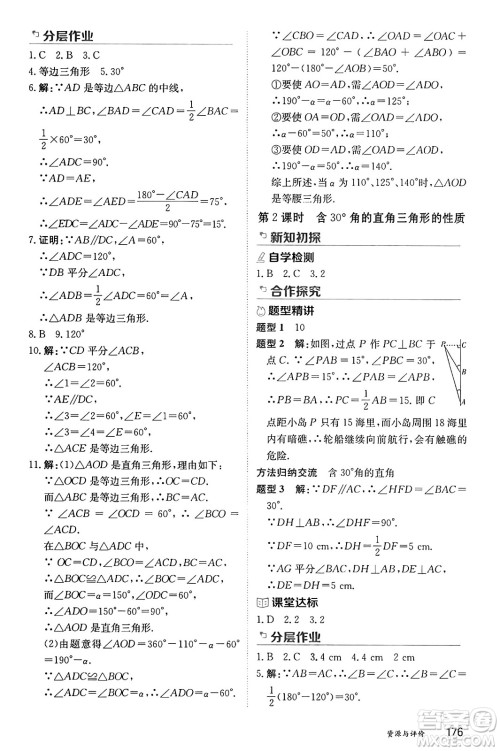 分层作业
1. C　2. B　3. C
4. 等边三角形　5. 30°
6. 解：∵AD 是等边△ABC 的中线，
∴AD⊥BC，∠BAD＝∠CAD＝1/2∠BAC＝
1/2×60°＝30°．
∴∠ADC＝90°．
∵AD＝AE，
∴∠ADE＝∠AED＝(180°－∠CAD)/2＝75°．
∴∠EDC＝∠ADC－∠ADE＝90°－75°＝15°．
7. 证明：∵AB∥DC，∠A＝60°，
∴∠ADC＝120°．
∵DB 平分∠ADC，
∴∠ADB＝1/2∠ADC＝60°．
∴△ABD 是等边三角形．
8. B　9. 120°
10. 解：∵CD 平分∠ACB，∠ACB＝120°，
∴∠1＝∠2＝60°．
∵AE∥DC，
∴∠3＝∠2＝60°，∠E＝∠1＝60°．
∴∠3＝∠4＝∠E＝60°．
∴△ACE 是等边三角形．
11. 解：(1)△AOD 是等边三角形．理由如下：
∵△OCD 是等边三角形，∴OC＝CD．
而△ABC 是等边三角形，∴BC＝AC．
∵∠ACB＝∠OCD＝60°，
∴∠BCO＝∠ACD．
在△BOC 与△ADC 中，
∵OC＝CD，∠BCO＝∠ACD，BC＝AC，
∴△BOC≌△ADC．∴∠BOC＝∠ADC．
而∠BOC＝α＝120°，∠OCD＝60°，
∴∠ADO＝60°．
∴△AOD 是等边三角形．
(2)由题意可得∠AOD＝360°－110°－60°－
α＝190°－α．
∵△BOC≌△ADC，∴∠ADC＝∠BOC＝α．
①要使 AO＝AD，需∠AOD＝∠ADO，
∴190°－α＝α－60°．∴α＝125°．
②要使 OA＝OD，需∠OAD＝∠ADO，
∴α－60°＝50°．∴α＝110°．
③要使 OD＝AD，需∠OAD＝∠AOD，
∴190°－α＝50°．∴α＝140°．
是等腰三角形．
第 2 课时　含 30°角的直角三角形的性质
新知初探
自学检测
1. B　2. C　3. 2
合作探究
题型精讲
题型 1　10
题型 2　解：如图，过点 P 作 PC⊥BD 于
C
点 C．∵∠PBD＝30°，∠A＝15°，
B
∴∠APB＝15°．∴BP＝AB．
A
点距小岛 P 只有 15 海里，而小岛周围 18 海
里内有暗礁，∴轮船继续向前航行，有触礁的
危险．
方法归纳交流　含 30°角的直角
题型 3　解：∵DH∥AF，∴∠HFD＝∠BAF
＝30°．
∵DH⊥DF，∴DH＝1/2HF＝5 cm．
∵DF＝10 cm，∴DH＝1/2DF．
∵AG 平分∠BAC，∴∠BAC＝2∠BAF＝
60°．
课堂达标
1. D　2. 2
分层作业
1. B　2. B　3. 4 cm　4. 2 cm
5. 解：∵∠C＝90°，∠B＝15°，∠DAB＝15°，
资源与评价　176